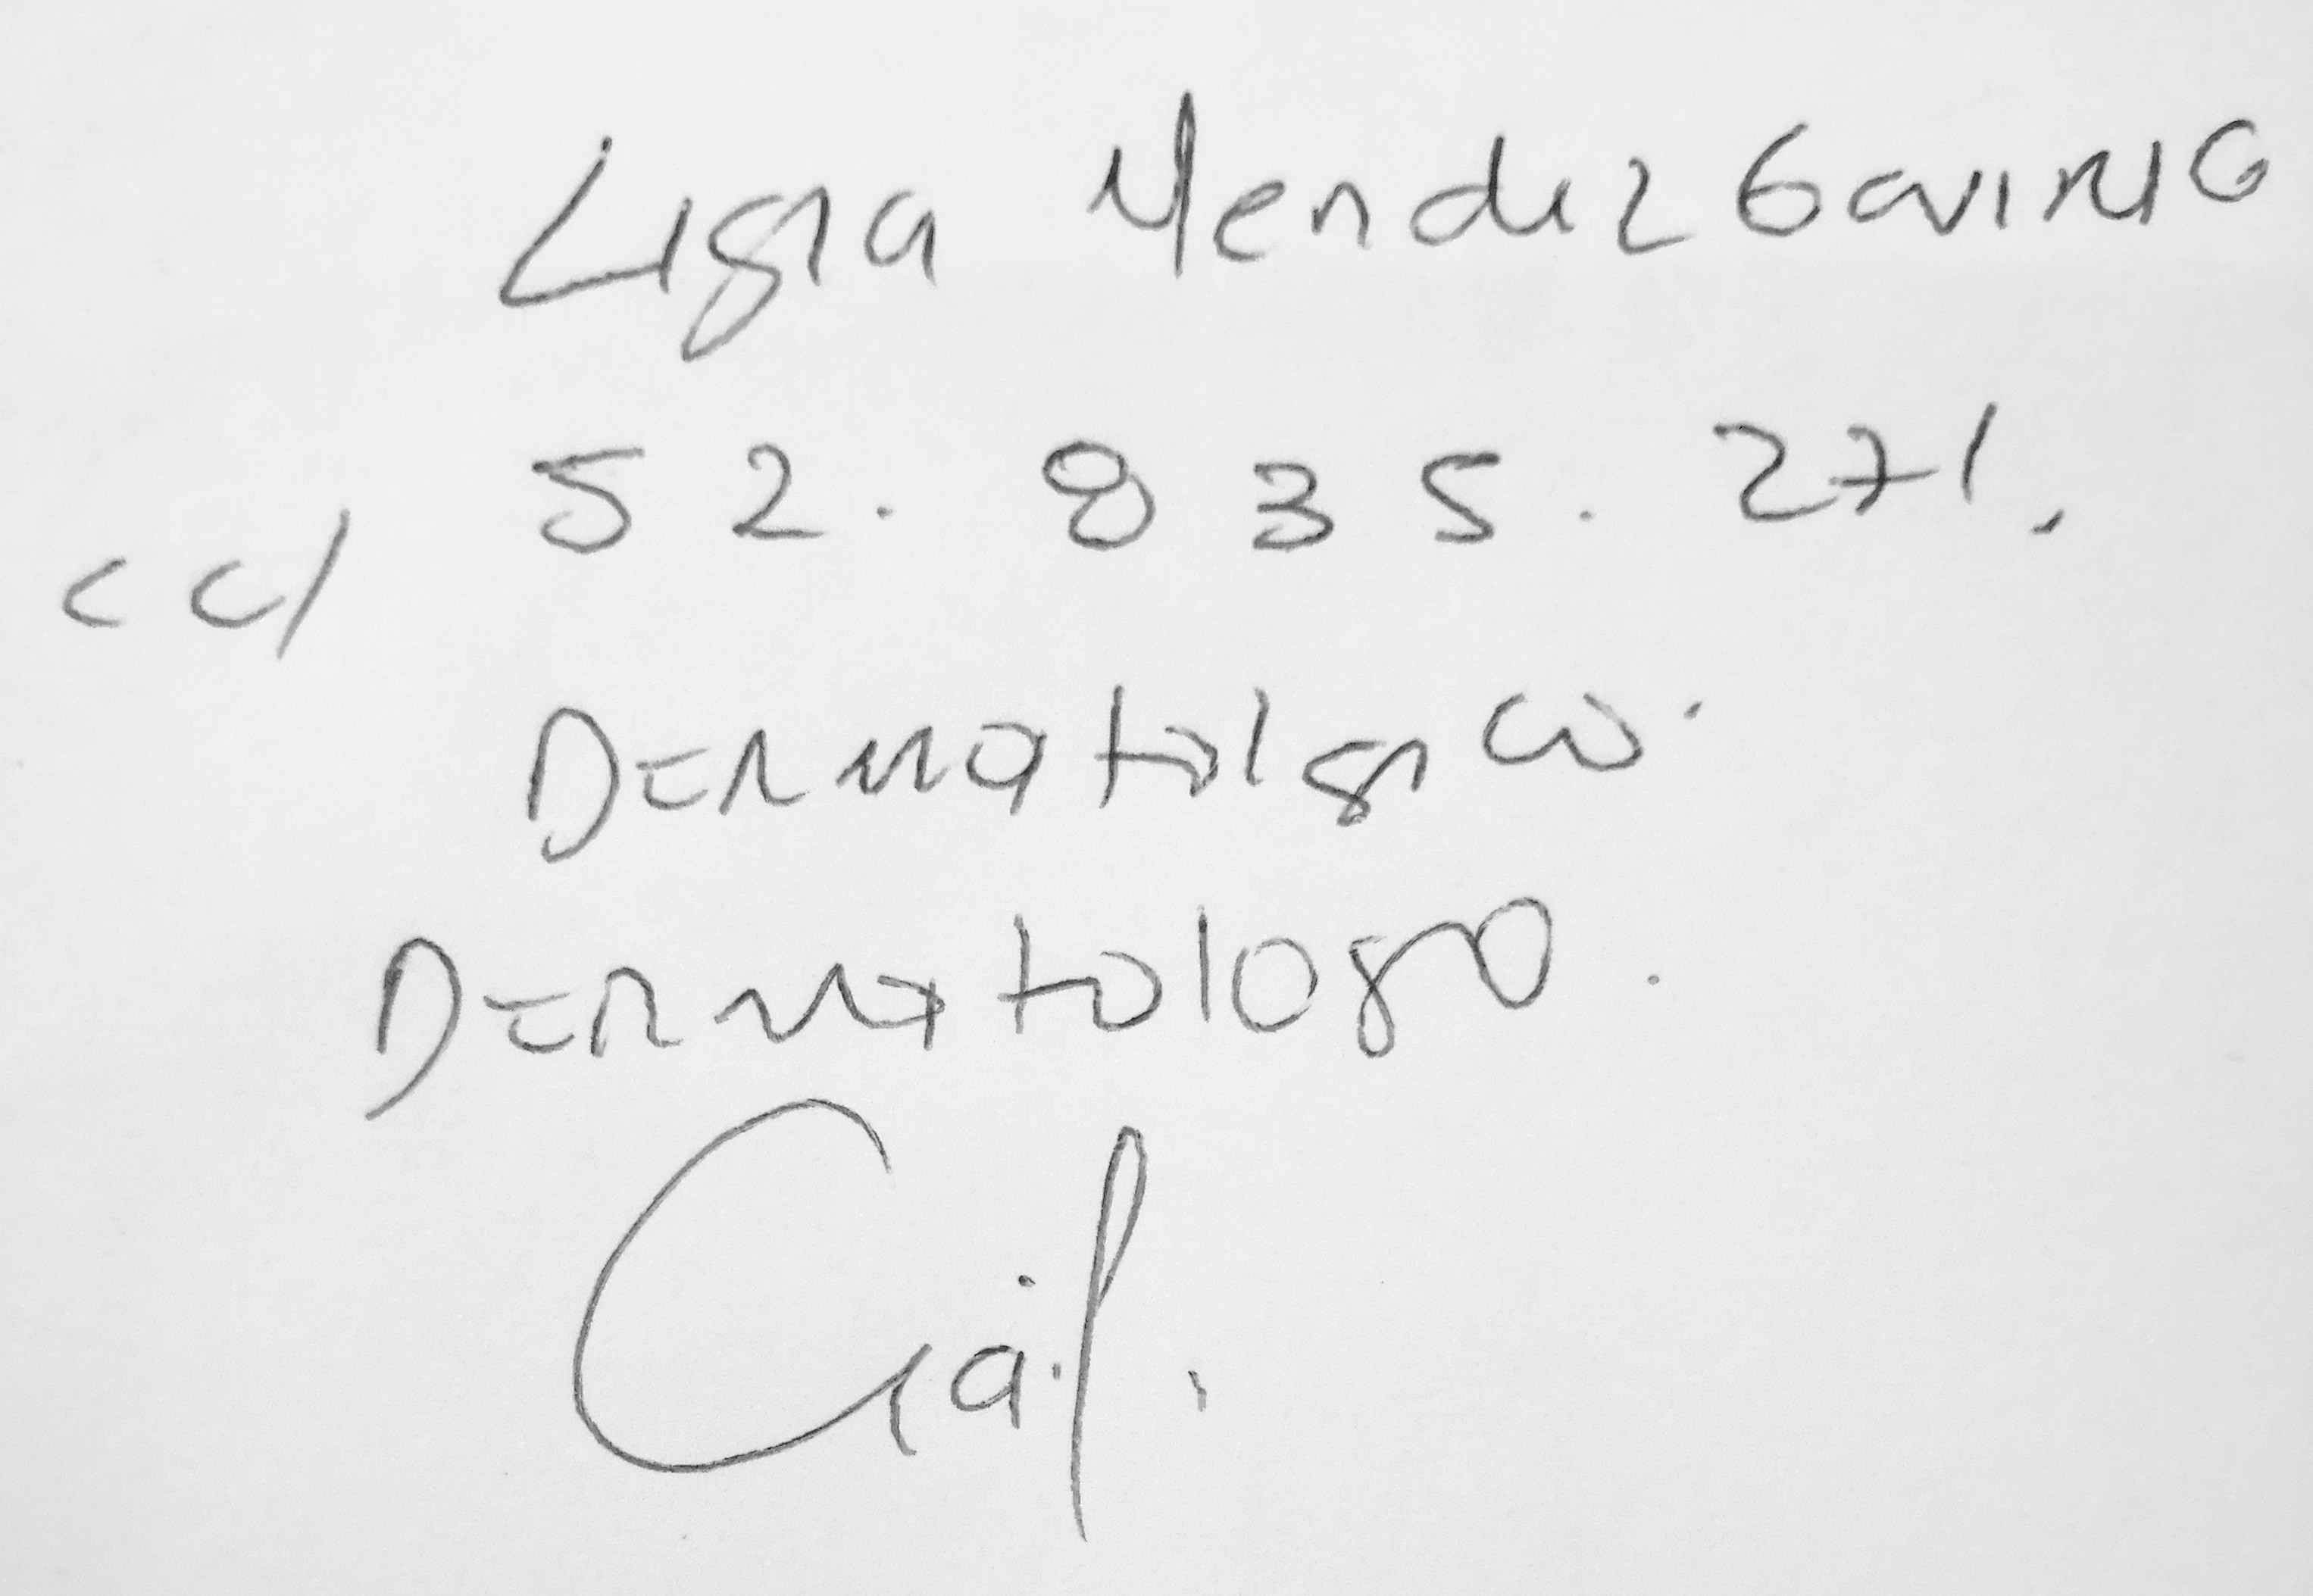 Ligia Mendez Gaviria
52.835.271.
cc/
Dermatolgico.
Dermatologo.